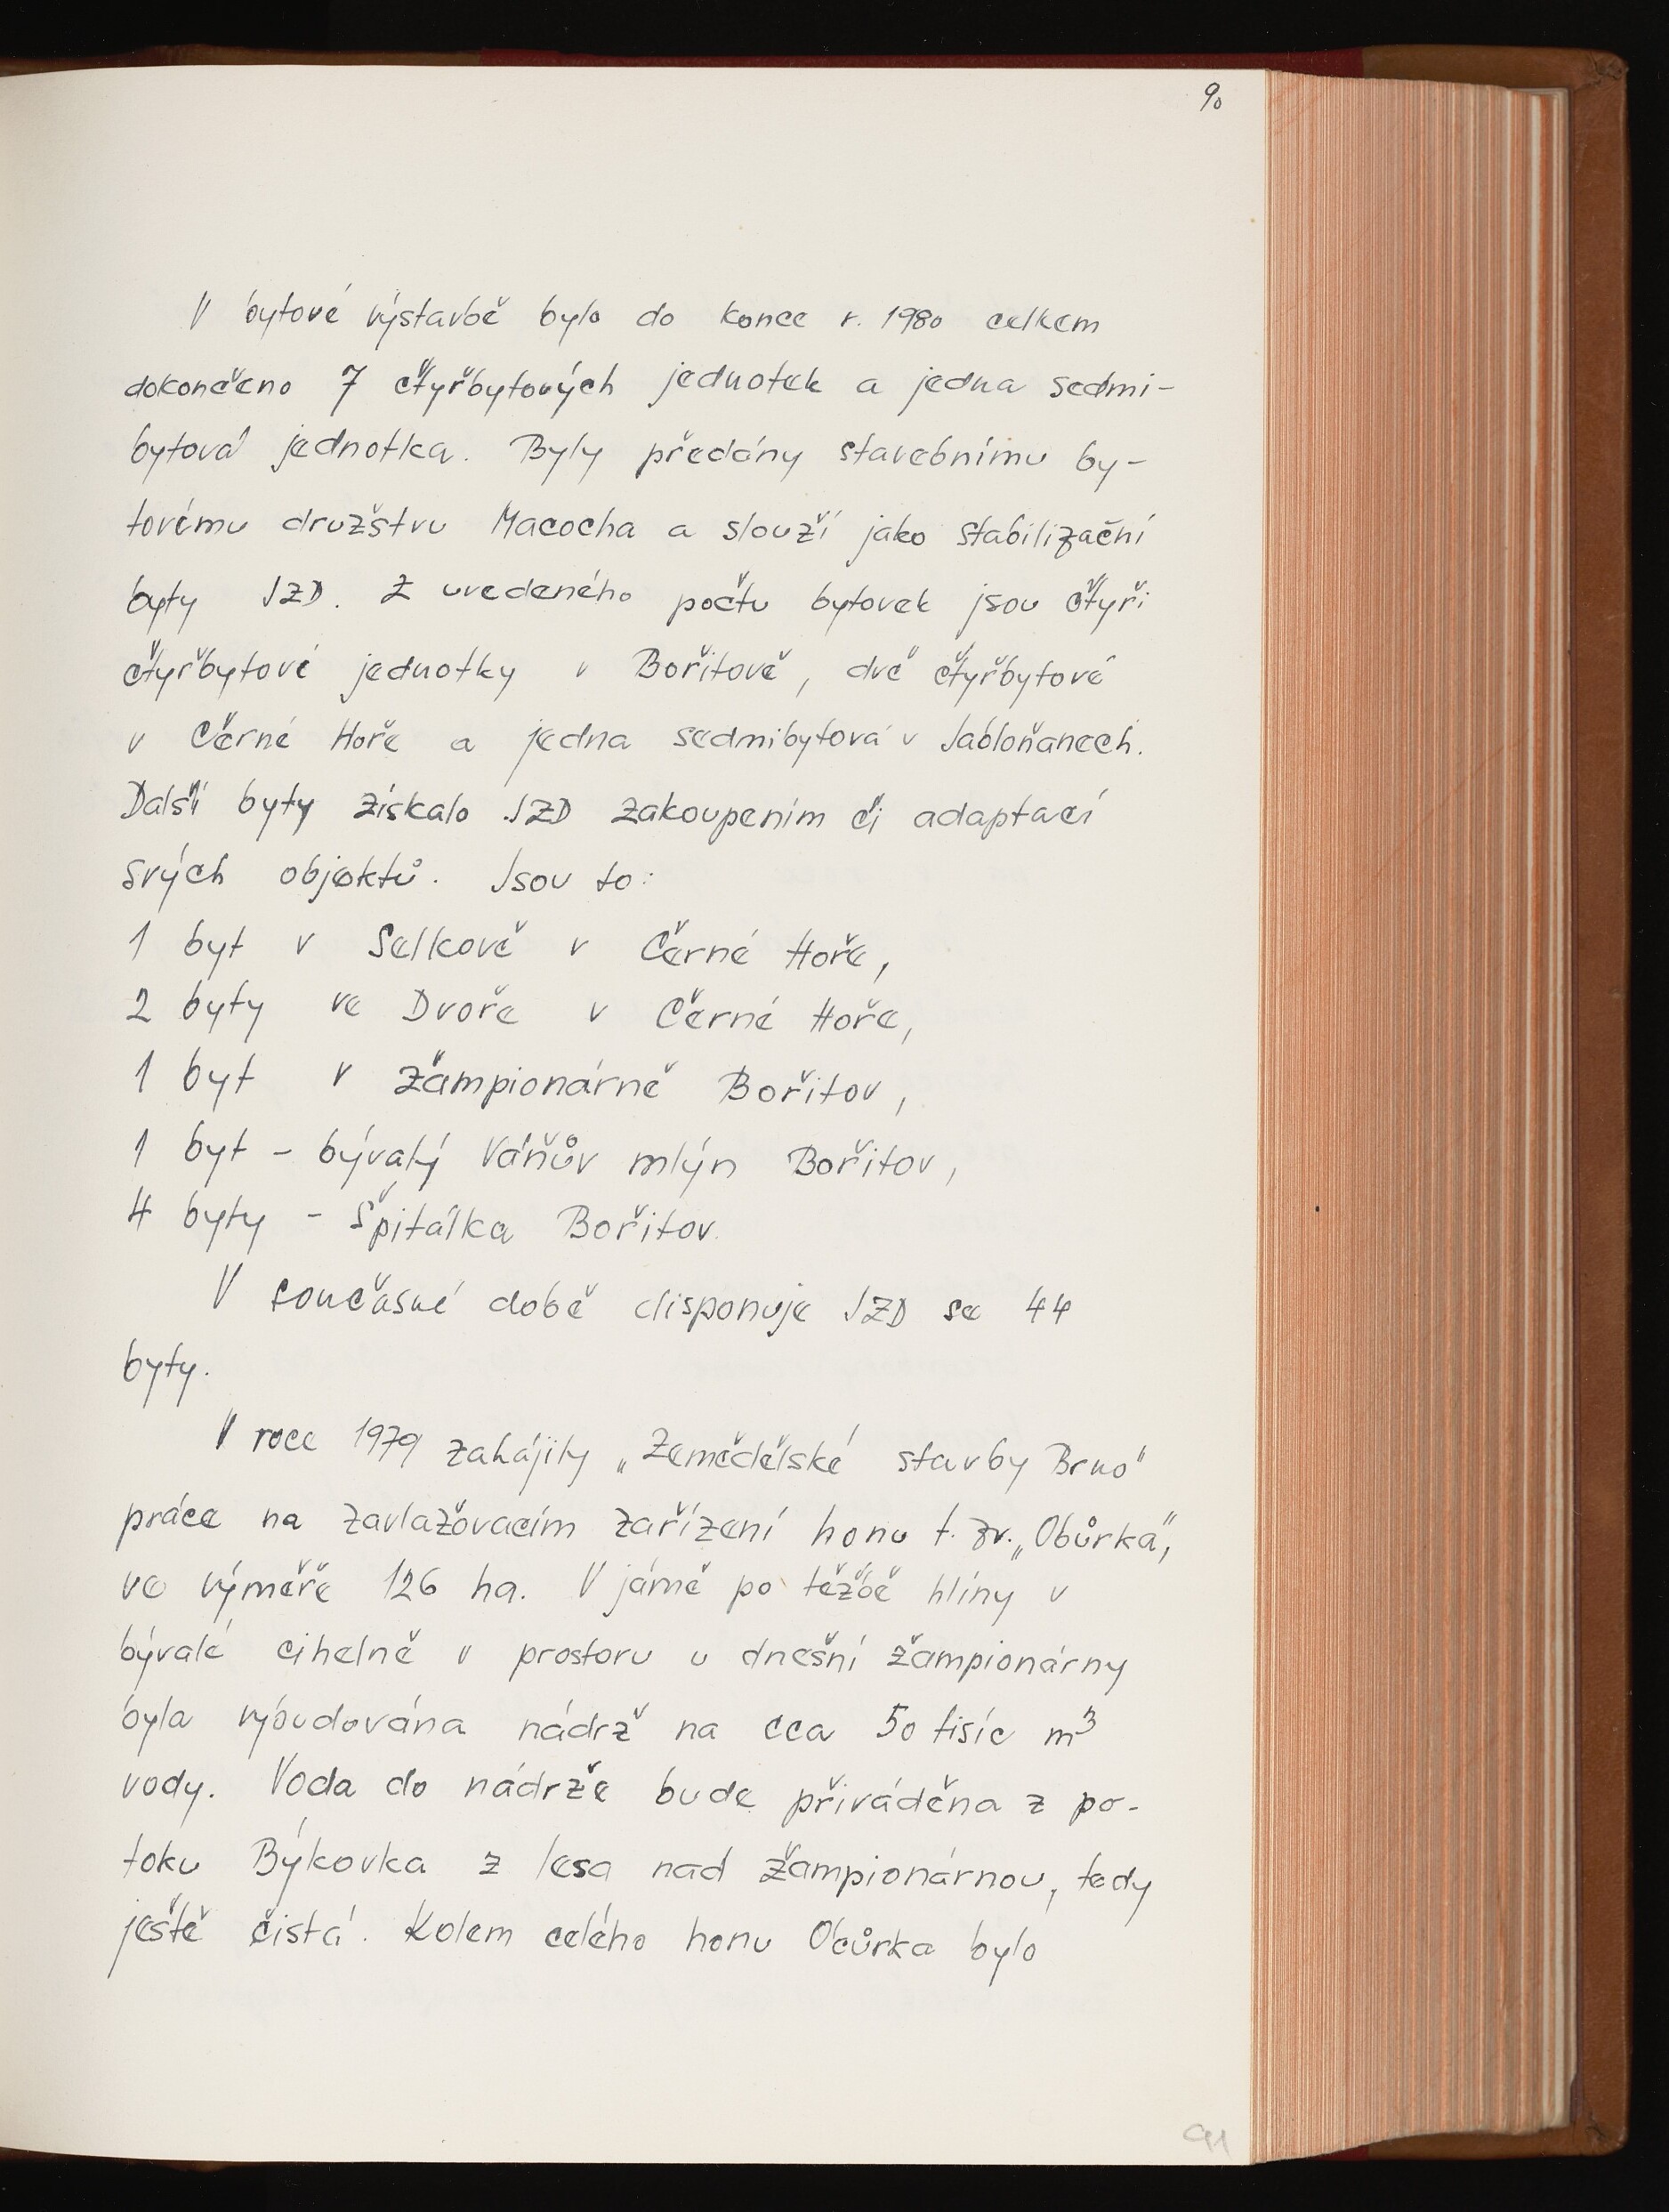 90
V bytové výstavbě bylo do konce r. 1980 celkem
dokončeno 7 čtyřbytových jednotek a jedna sedmi-
bytová jednotka. Byly předány stavebnímu by-
tovému družstvu Macocha a slouží jako stabilizační
byty JZD. Z uvedeného počtu bytovek jsou čtyři
čtyřbytové jednotky v Bořitově, dvě čtyřbytové
v Černé Hoře a jedna sedmibytová v Jabloňanech.
Další byty získalo JZD zakoupením či adaptací
svých objektů. Jsou to:
1 byt v Selkově v Černé Hoře,
2 byty ve Dvoře v Černé Hoře,
1 byt v žampionárně Bořitov,
1 byt - bývalý Váňův mlýn Bořitov,
4 byty - Špitálka Bořitov.
V současné době disponuje JZD se 44
byty.
V roce 1979 zahájily „Zemědělské stavby Brno"
práce na zavlažovacím zařízení honu t. zv. „Obůrka",
ve výměře 126 ha. V jámě po těžbě hlíny v
bývalé cihelně v prostoru u dnešní žampionárny
byla vybudována nádrž na cca 50 tisíc m³
vody. Voda do nádrže bude přiváděna z po-
toku Býkovka z lesa nad žampionárnou, tedy
ještě čistá. Kolem celého honu Obůrka bylo
91